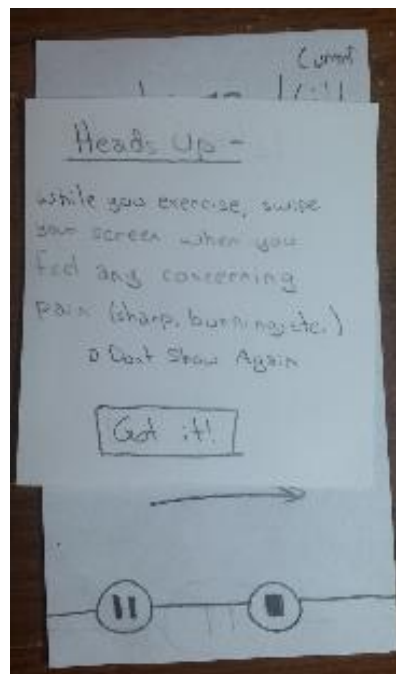 Current
Heads Up -
while you exercise, swipe
your screen when you
feel any concerning
pain (sharp, burning, etc.)
Dont Show Again
Got it!